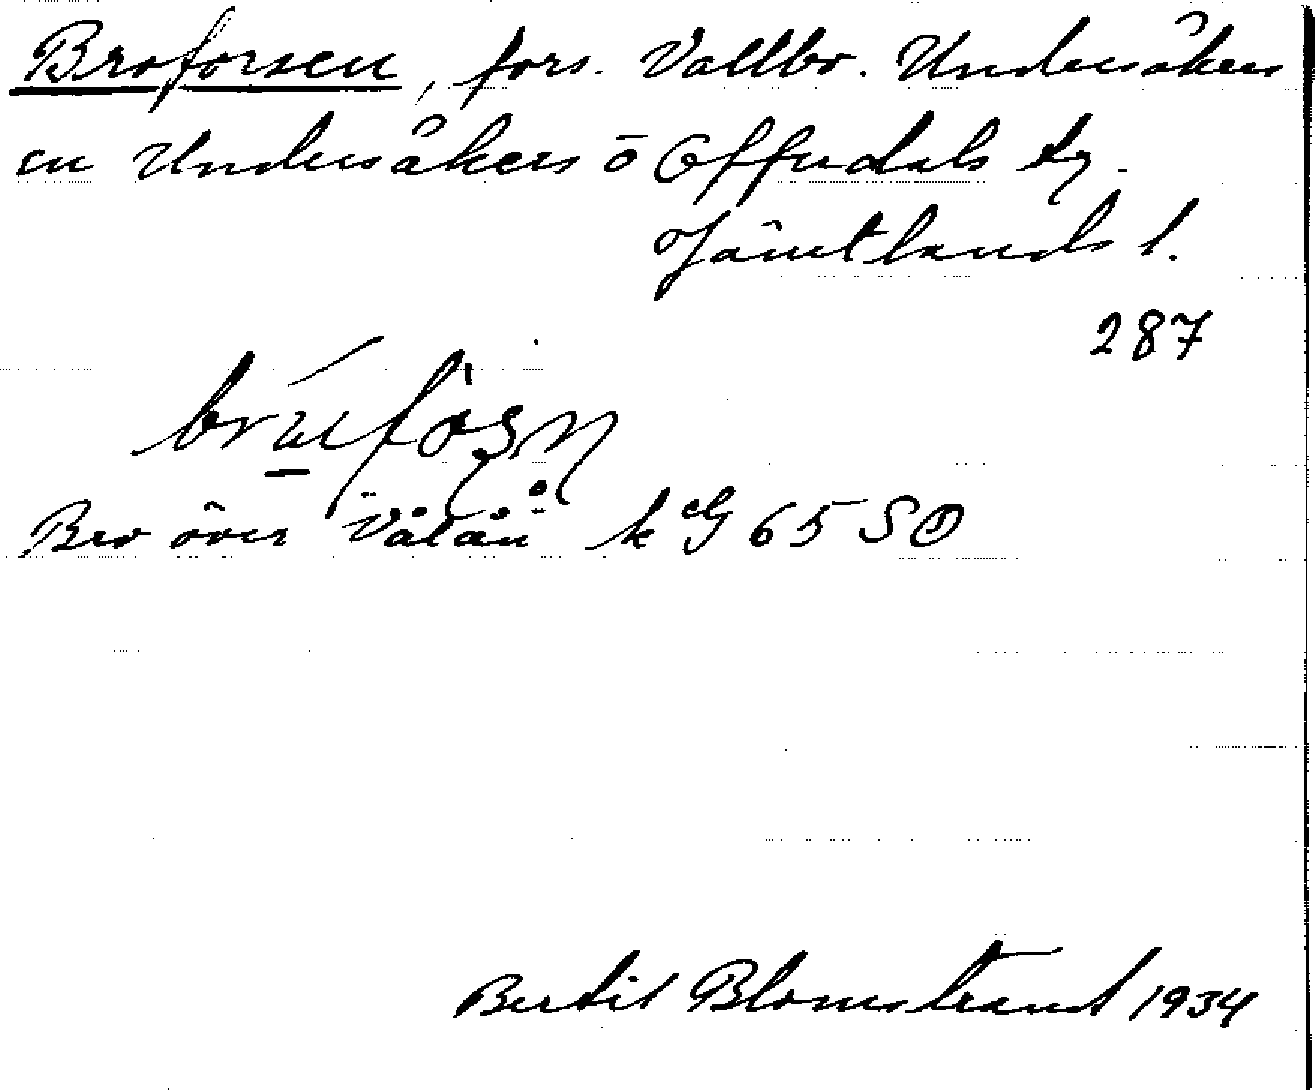 Broforsen, fors. Vallbo. Undersåkers
sn Undersåkers o Offerdals tg.
Jämtlands l.
287
Bro över Vålån k G 65 SO
Bertil Blomstrand 1934